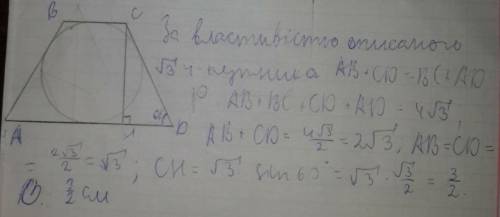 B C
За властивістю описаного
√3 4-кутника AB+CD=BC+AD
P AB+BC+CD+AD = 4√3,
A D AB+CD = 4√3/2 = 2√3, AB=CD=
= 2√3/2 = √3; CH = √3 sin 60° = √3 · √3/2 = 3/2.
3/2 см